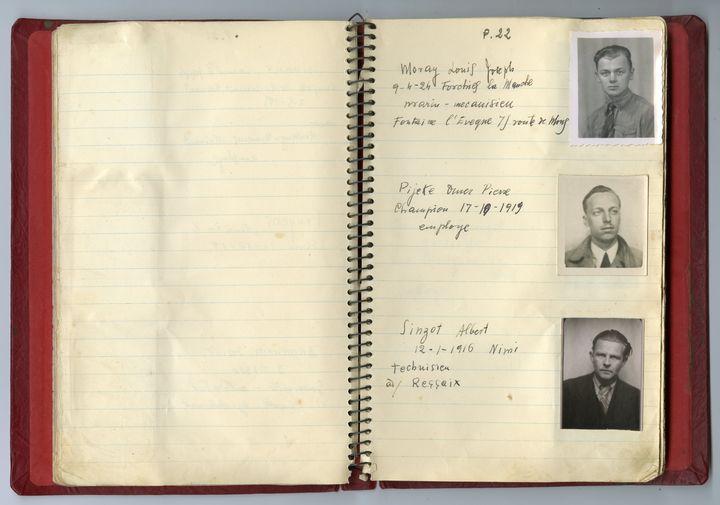 P.22
Moray Louis Joseph
9-4-24 Forchies la Marche
marin - mecanicien
Fontaine l'Eveque 71 route de Mons
Pijcke Omer Pierre
Champion 17-10-1919
employe
Sinzot Albert
12-1-1916 Nimi
technicien
à Ressaix